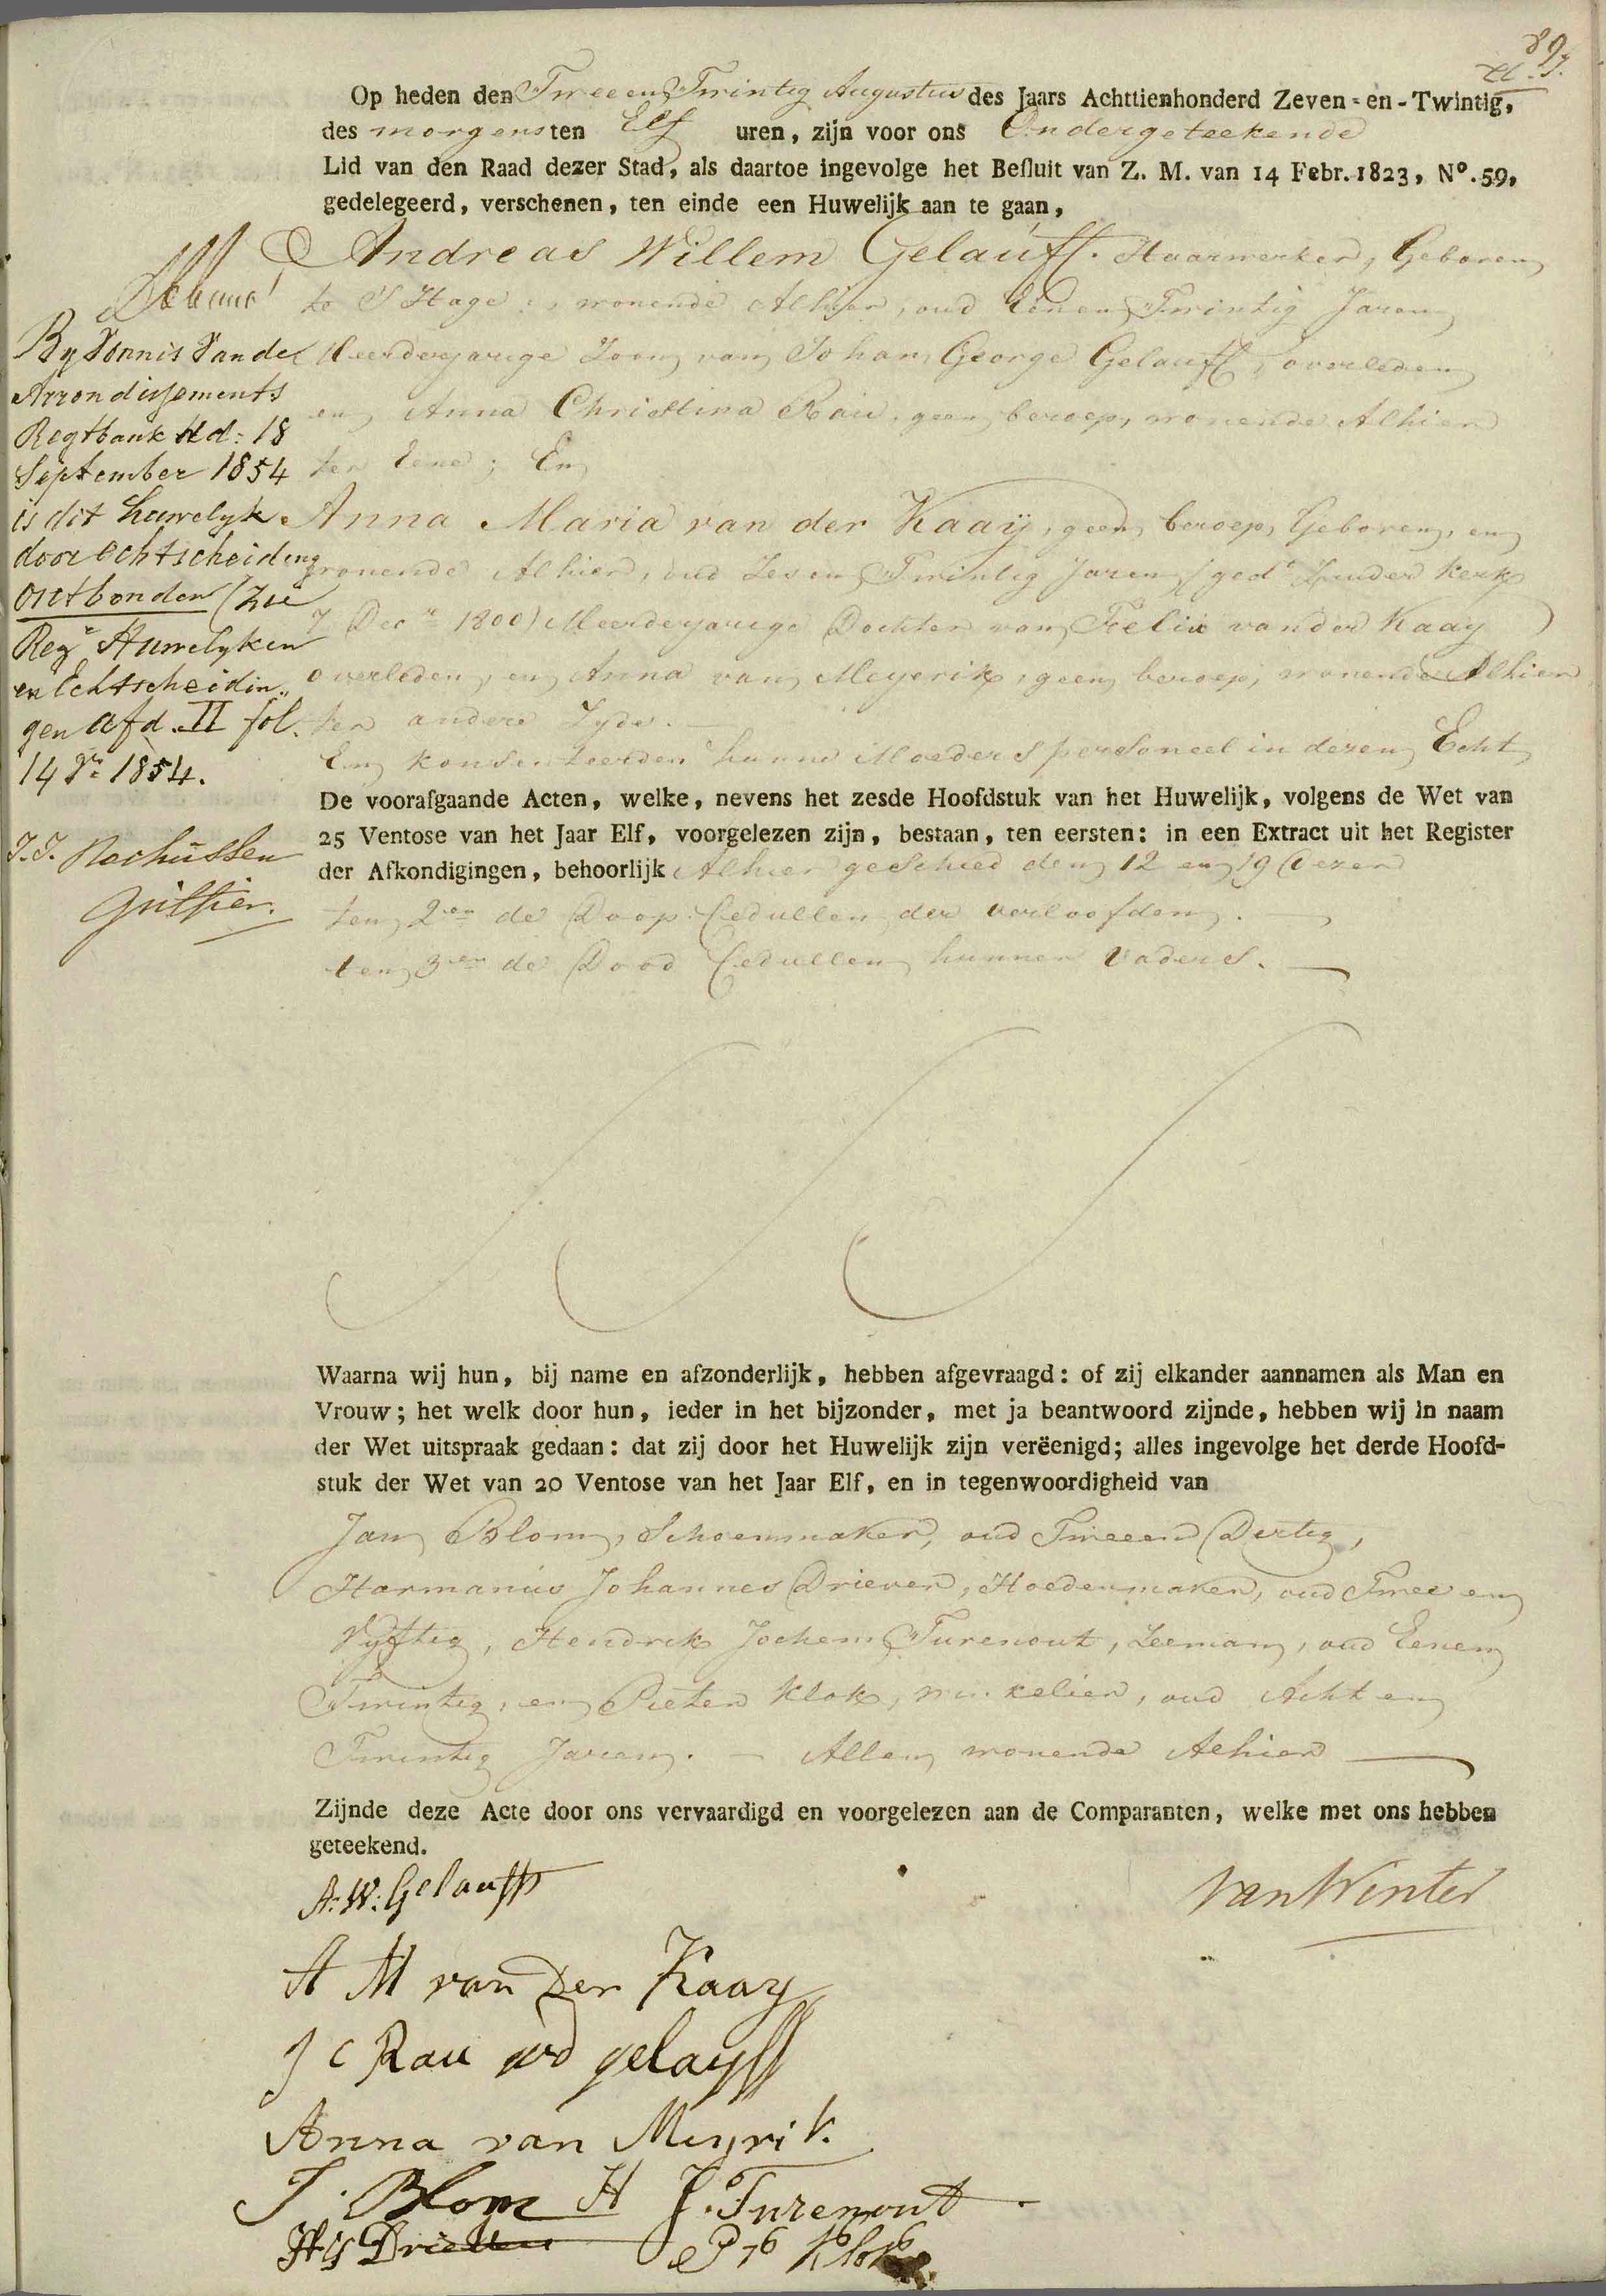 89
Op heden den Twee en Twintig Augustus des Jaars Achttienhonderd Zeven-en-Twintig,
des morgens ten Elf uren, zijn voor ons Ondergeteekende
Lid van den Raad dezer Stad, als daartoe ingevolge het Besluit van Z. M. van 14 Febr. 1823, No. 59,
gedelegeerd, verschenen, ten einde een Huwelijk aan te gaan,
Andreas Willem Gelauff. Haarwerker, Geboren
te S'Hage, wonende Alhier, oud Een en Twintig Jaren
Meerderjarige Zoon van Johan George Gelauff, overleden
en Anna Christina Rau, geen beroep, wonende Alhier
ter Eene; En
Anna Maria van der Kaaÿ, geen beroep, Geboren, en
wonende Alhier, oud Zes en Twintig Jaren (ged. Zuider Kerk
7 Decr 1800) Meerderjarige Dochter van Felix van der Kaay
overleden, en Anna van Meyerik, geen beroep, wonende Alhier
ter andere Zyde.
En konsenteerden hunne Moeders personeel in dezen Echt
By Vonnis van de
Arrondissements
Regtbank dd: 18
September 1854
is dit huwelyk
door echtscheiding
ontbonden (Zie
Regr Huwelyken
en Echtscheidin..
gen afd. II fol.
14 Ao 1854.
J. J. Rochussen
Griffier.
De voorafgaande Acten, welke, nevens het zesde Hoofdstuk van het Huwelijk, volgens de Wet van
25 Ventose van het Jaar Elf, voorgelezen zijn, bestaan, ten eersten: in een Extract uit het Register
der Afkondigingen, behoorlijk Alhier geschied den 12 en 19 dezer
ten 2en de Doop Cedullen der verloofden.
ten 3en de Dood Cedullen hunner Vaders.
Waarna wij hun, bij name en afzonderlijk, hebben afgevraagd: of zij elkander aannamen als Man en
Vrouw; het welk door hun, ieder in het bijzonder, met ja beantwoord zijnde, hebben wij in naam
der Wet uitspraak gedaan: dat zij door het Huwelijk zijn verëenigd; alles ingevolge het derde Hoofd-
stuk der Wet van 20 Ventose van het Jaar Elf, en in tegenwoordigheid van
Jan Blom, Schoenmaker, oud Twee en Dertig,
Harmanus Johannes Driever, Hoedenmaker, oud Twee en
Vyftig, Hendrik Jochem Turenout, Zeeman, oud Een en
Twintig, en Pieter Klok, winkelier, oud Acht en
Twintig Jaren. — Allen wonende Alhier
Zijnde deze Acte door ons vervaardigd en voorgelezen aan de Comparanten, welke met ons hebben
geteekend.
A: W: Gelauff
van Winter
A M van Der Kaay
J C Rau wd gelauff
Anna van Meyrik.
J. Blom H J. Turenout
HJ Driever P Klok